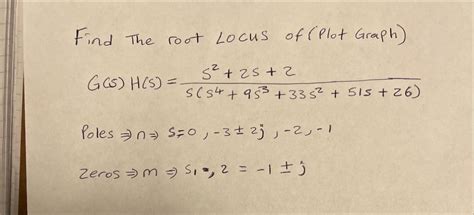 Find The root Locus of (Plot Graph)
G(S) H(S) = S² + 2S + 2 / S(S⁴ + 9S³ + 33S² + 51S + 26)
Poles ⇒ n ⇒ S=0, -3 ± 2j, -2, -1
Zeros ⇒ m ⇒ S₁,₂ = -1 ± j